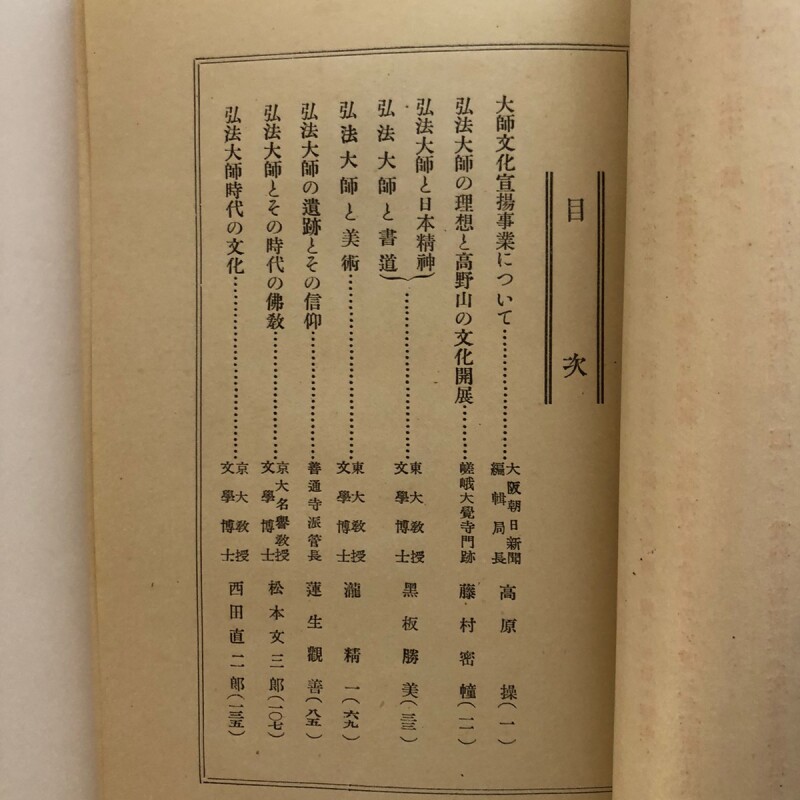 目次
大師文化宣揚事業について…………………大阪朝日新聞編輯局長 高原操(一)
弘法大師の理想と高野山の文化開展………嵯峨大覺寺門跡 藤村密幢(一一)
弘法大師と日本精神
弘法大師と書道…………………東大教授文學博士 黑板勝美(三三)
弘法大師と美術…………………東大教授文學博士 瀧精一(六九)
弘法大師の遺跡とその信仰…………………善通寺派管長 蓮生觀善(八五)
弘法大師とその時代の佛敎…………………京大名譽敎授文學博士 松本文三郎(一〇七)
弘法大師時代の文化…………………京大敎授文學博士 西田直二郎(一三五)